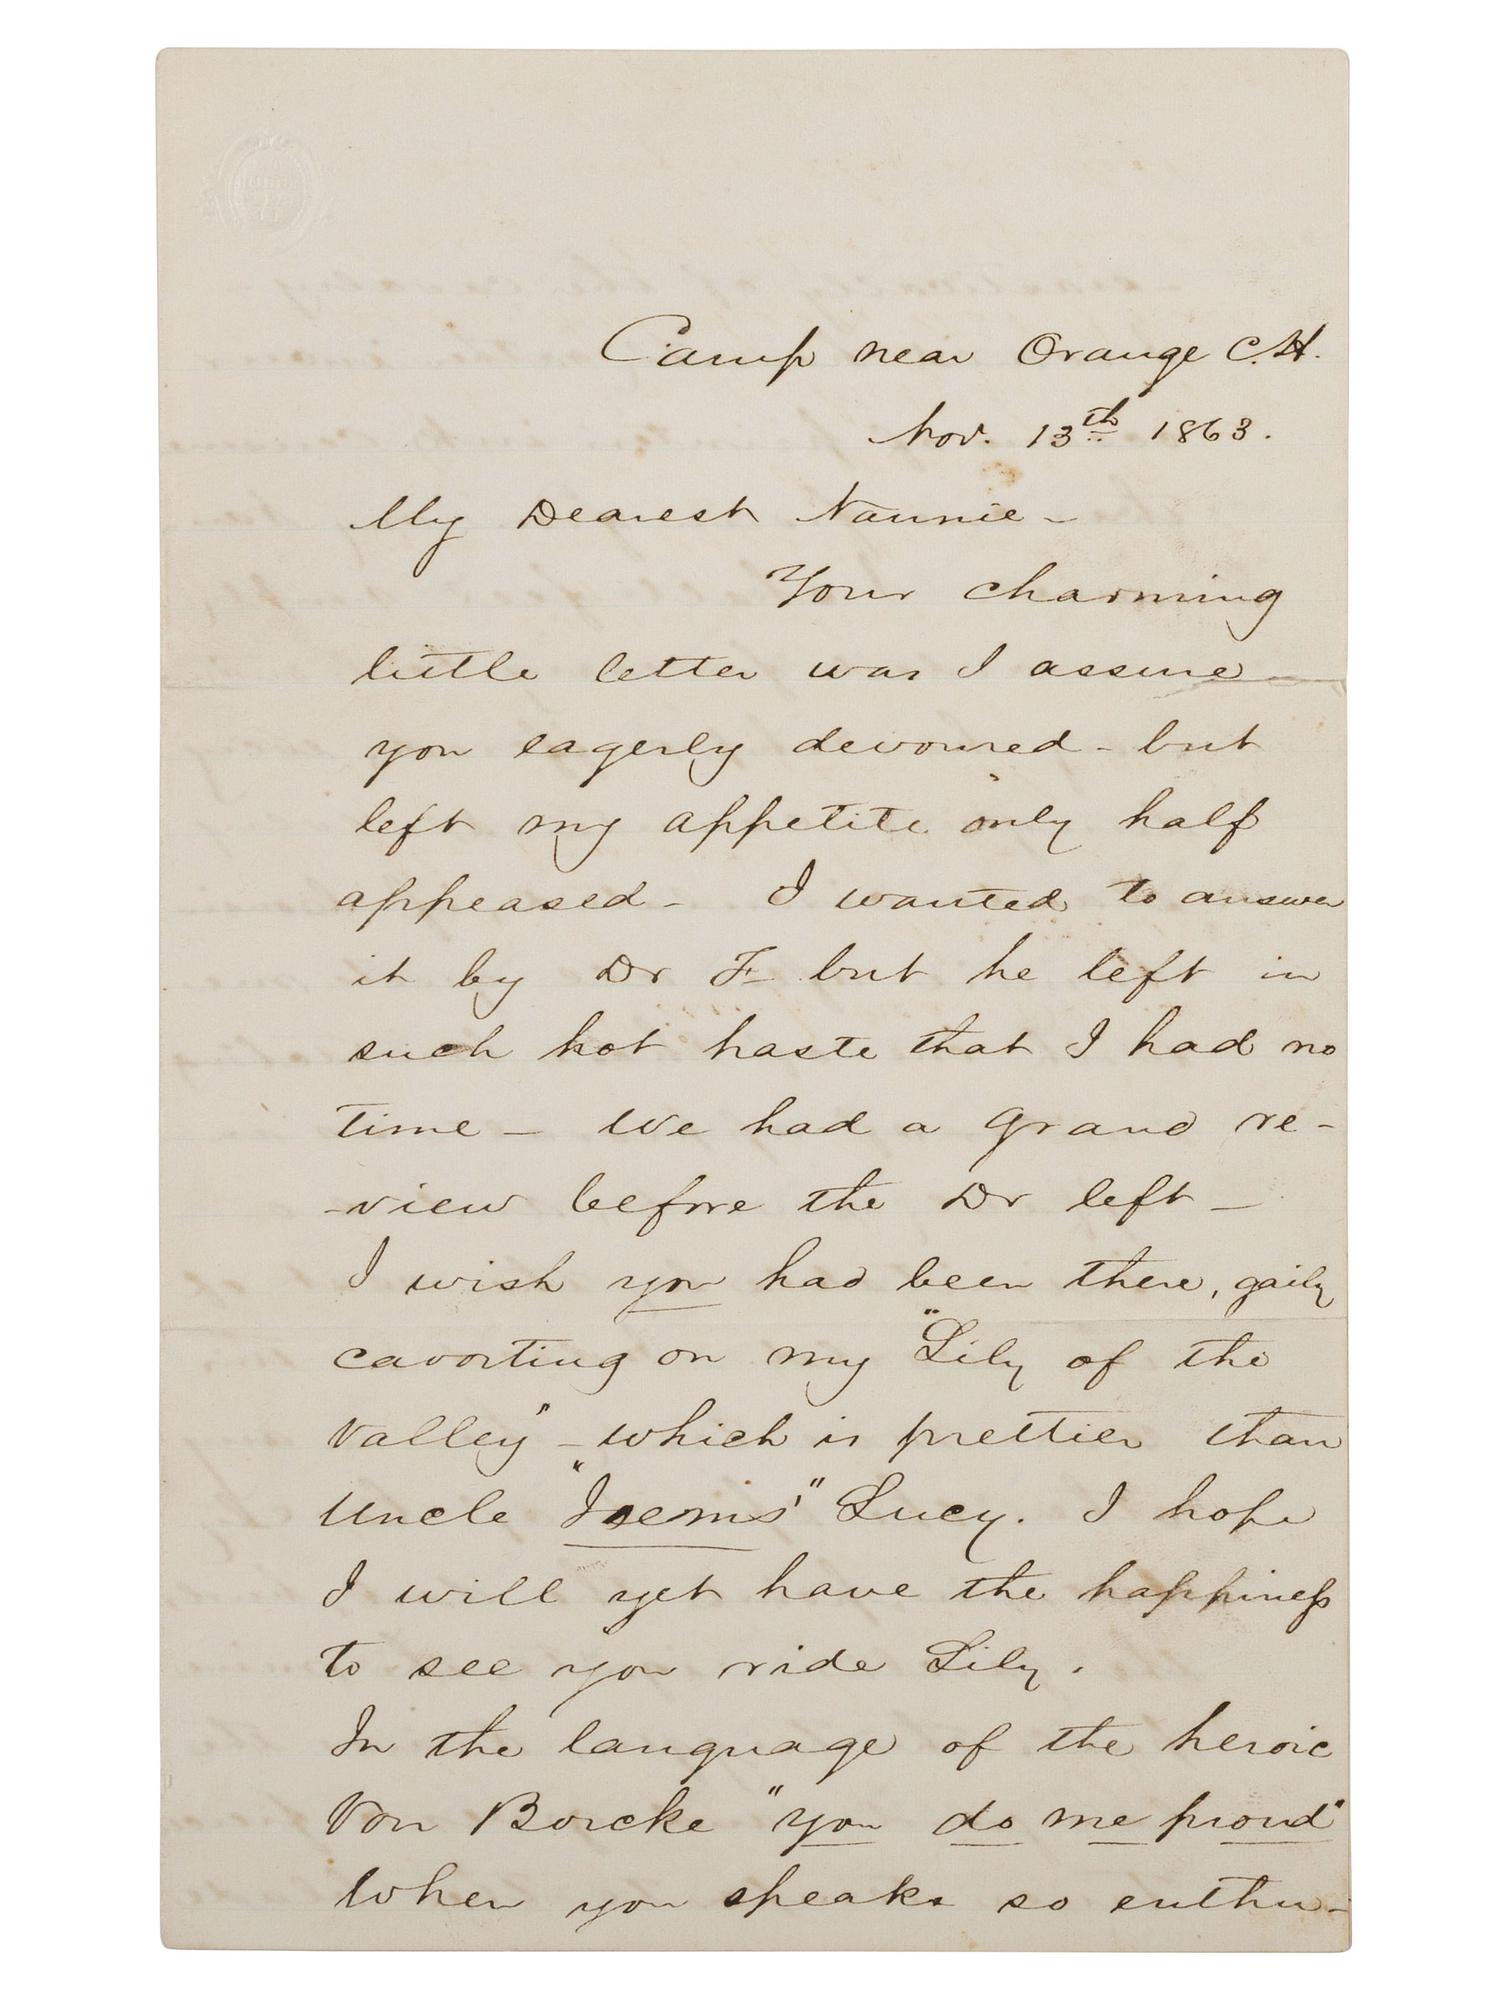 Camp near Orange C.H.
Nov. 13th 1863.
My Dearest Nannie -
Your charming
little letter was I assure
you eagerly devoured - but
left my appetite only half
appeased - I wanted to answer
it by Dr F- but he left in
such hot haste that I had no
time - We had a grand re-
-view before the Dr left -
I wish you had been there, gaily
cavorting on my "Lily of the
Valley" - which is prettier than
Uncle "Jeems'" Lucy. I hope
I will yet have the happiness
to see you ride Lily.
In the language of the heroic
Von Borcke "you do me proud"
When you speaks so enthu-